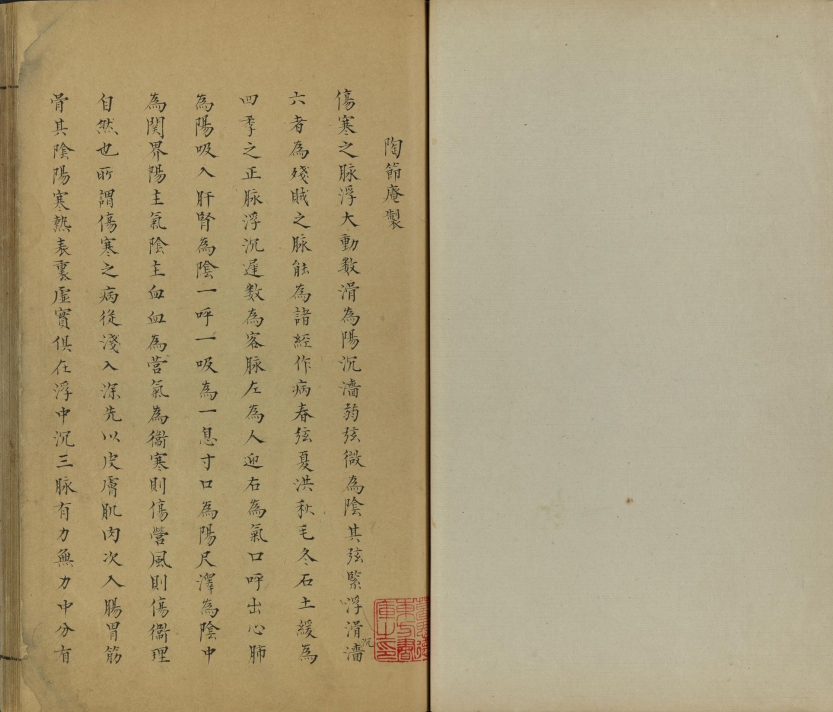 陶節庵製
傷寒之脉浮大動數滑為陽沉濇弱弦微為陰其弦緊浮滑濇沉
六者為殘賊之脉能為諸經作病春弦夏洪秋毛冬石土緩為
四季之正脉浮沉遲數為客脉左為人迎右為氣口呼出心肺
為陽吸入肝腎為陰一呼一吸為一息寸口為陽尺澤為陰中
為関界陽主氣陰主血血為营氣為衞寒則傷营風則傷衞理
自然也所謂傷寒之病從淺入深先以皮膚肌肉次入腸胃筋
骨其陰陽寒熱表裏虛實俱在浮中沉三脉有力無力中分有